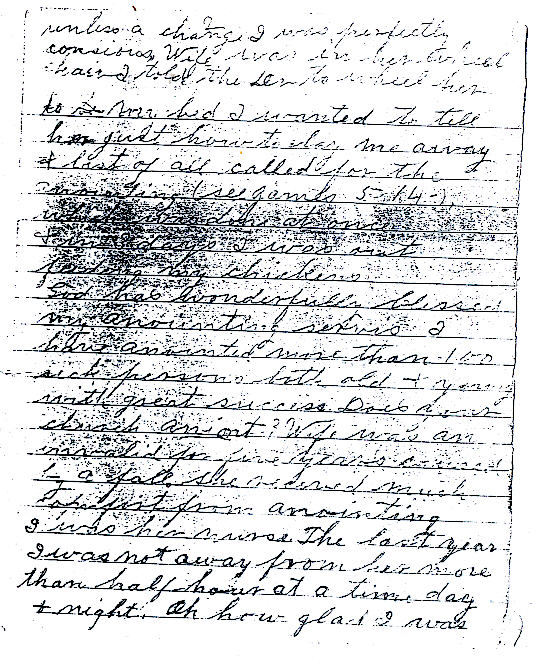 unless a change I was perfectly
conscious, Wife was in her wheel
chair I told the Dr to wheel her
to my bed I wanted to tell
her just how to lay me away
& last of all called for the
anointing (see James 5-14-),
which was done at once
I was out
feeding my chickens
God has wonderfully blessed
my anointing I
have anointed more than 100
sick persons both old & young
with great success Does your
church aniont? Wife was an
invalid for five years caused
by a fall, she recived much
comfort from anointing
I was her nurse The last year
I was not away from her more
than half hour at a time day
& night. Oh how glad I was